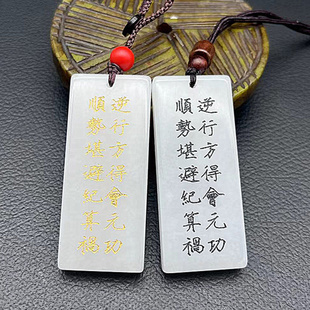 逆行方得會元功
順勢堪避紀算禍
逆行方得會元功
順勢堪避紀算禍